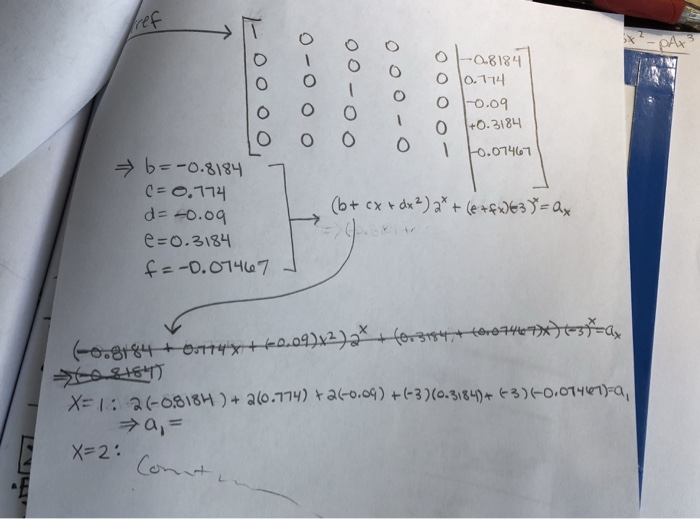 rref →
5x² - pAx³
[ 1 0 0 0 0 | -0.8184 ]
[ 0 1 0 0 0 | 0.774 ]
[ 0 0 1 0 0 | -0.09 ]
[ 0 0 0 1 0 | +0.3184 ]
[ 0 0 0 0 1 | -0.07467 ]
⇒ b = -0.8184
c = 0.774
d = -0.09
e = 0.3184
f = -0.07467
→ (b + cx + dx²) 2ˣ + (e + fx)(-3)ˣ = aₓ
(-0.8184 + 0.774x + (-0.09)x²) 2ˣ + (0.3184 + (-0.07467)x) (-3)ˣ = aₓ
⇒ (-0.8184)
X=1: 2(-0.8184) + 2(0.774) + 2(-0.09) + (-3)(0.3184) + (-3)(-0.07467) = a₁
⇒ a₁ =
X=2: